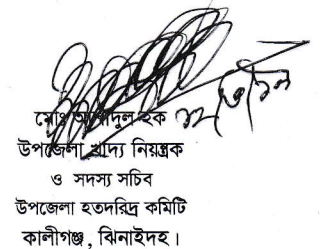 মোঃ আসাদুল হক
উপজেলা খাদ্য নিয়ন্ত্রক
ও সদস্য সচিব
উপজেলা হতদরিদ্র কমিটি
কালীগঞ্জ, ঝিনাইদহ।